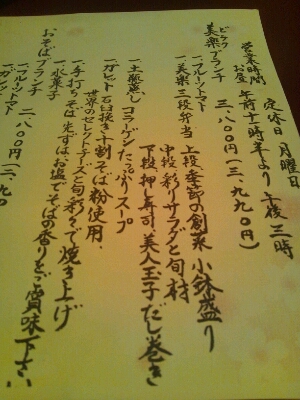 定休日 月曜日
営業時間 午前十一時半より午後三時
お昼
ビラク
美楽ブランチ 三、八〇〇円(三、九九〇円)
一.フルーツトマト
一.美楽三段弁当 上段 季節の創菜 小鉢盛り
中段 彩りサラダと旬材
下段 押し寿司、美人玉子だし巻き
一.土瓶蒸し コラーゲンたっぷりスープ
一.ガレット 石臼挽き十割そば粉使用、
世界のセレクトチーズと旬彩のせて焼き上げ
一.手打ちそば 先ずは、お塩でそばの香りをご賞味下さい
一.水菓子
おそばブランチ 二、八〇〇円(二、九
一.フルーツトマト